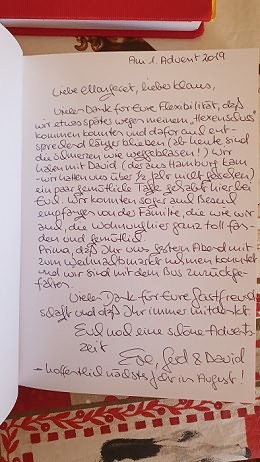 Am 1. Advent 2019
Liebe Margaret, lieber Klaus,
Vielen Dank für Eure Flexibilität, daß
wir etwas später wegen meinem "Hexenschuß"
kommen konnten und dafür auch ent-
sprechend länger blieben (ab heute sind
die Schmerzen wie weggeblasen!) Wir
haben mit David (der aus Hamburg kam
- wir hatten uns über 1/2 Jahr nicht gesehen)
ein paar gemütliche Tage gehabt hier bei
Euch. Wir konnten sogar auch Besuch
empfangen von der Familie, die wie wir
auch die Wohnung hier ganz toll fan-
den und gemütlich.
Prima, daß Ihr uns gestern Abend mit
zum Weihnachtsmarkt nehmen konntet
und wir sind mit dem Bus zurückge-
fahren.
Vielen Dank für Eure Gastfreund-
schaft und daß Ihr immer mitdenkt.
Euch noch eine schöne Advents-
zeit
Gerd & David
- hoffentlich nächstes Jahr im August!